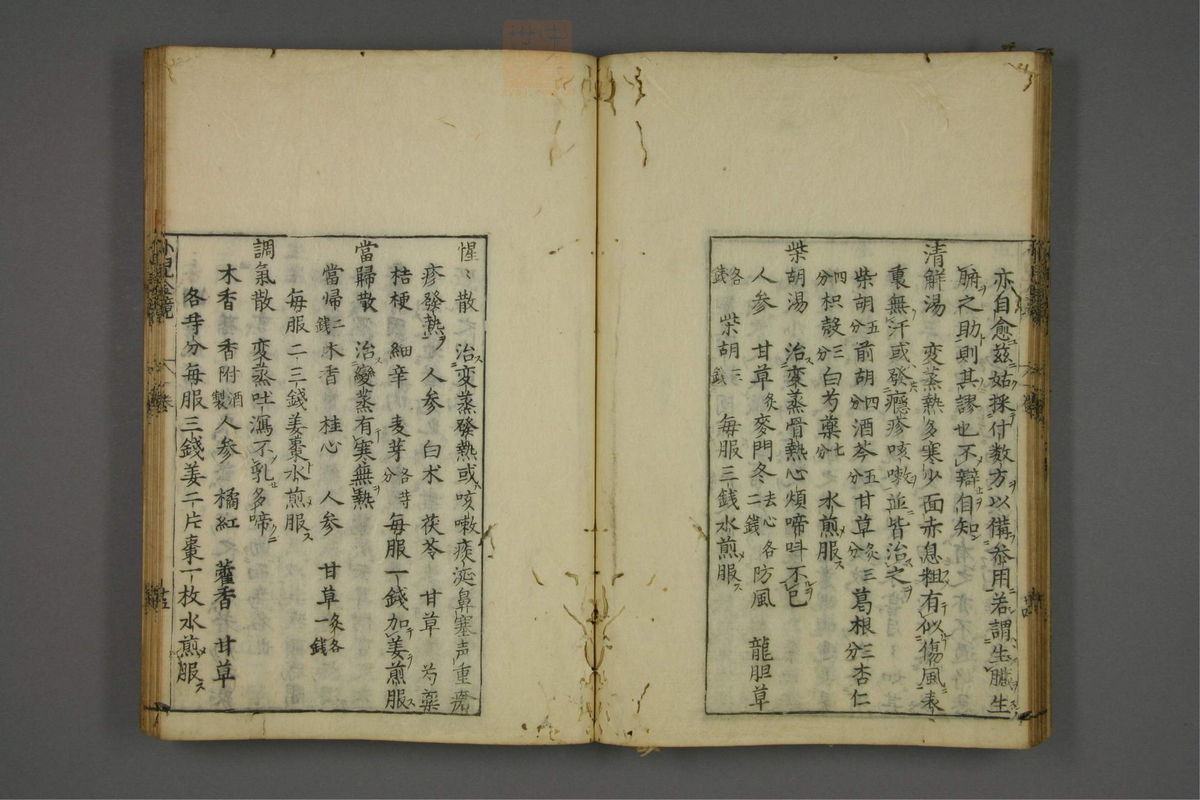 亦自愈茲姑採付数方以備参用若謂生臓生
腑之助則其謬也不辯自知
清解湯 変蒸熱多寒少面赤息粗有似傷風表
裏無汗或發癮疹咳嗽並皆治之
柴胡五分前胡四分酒芩五分甘草炙三分葛根三分杏仁
四分枳殻三分白芍薬七分 水煎服
柴胡湯 治変蒸骨熱心煩啼呌不已
人参 甘草炙麥門冬去心各二錢防風 龍胆草
各錢柴胡三錢 毎服三錢水煎服
惺〻散 治変蒸發熱或咳嗽痰涎鼻塞声重瘡
疹發熱 人参 白朮 茯苓 甘草 芍薬
桔梗 細辛 麦芽各等分 毎服一錢加姜煎服
當歸散 治變蒸有寒無熱
當帰二錢木香 桂心 人参 甘草炙各一錢
毎服二三錢姜棗水煎服
調氣散 変蒸吐瀉不乳多啼
木香香附酒製人参 橘紅 藿香 甘草
各等分毎服三錢姜二片棗一枚水煎服
小児全鏡